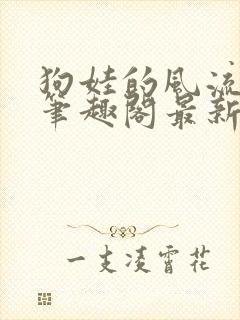 狗娃的风流
笔趣阁最新
一支凌霄花